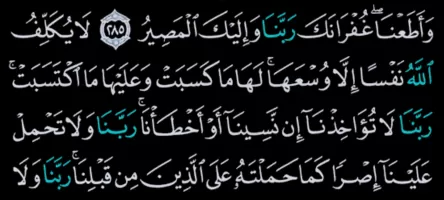 وَأَطَعۡنَاۖ غُفۡرَانَكَ رَبَّنَا وَإِلَيۡكَ ٱلۡمَصِيرُ ٢٨٥ لَا يُكَلِّفُ
ٱللَّهُ نَفۡسًا إِلَّا وُسۡعَهَاۚ لَهَا مَا كَسَبَتۡ وَعَلَيۡهَا مَا ٱكۡتَسَبَتۡۗ
رَبَّنَا لَا تُؤَاخِذۡنَآ إِن نَّسِينَآ أَوۡ أَخۡطَأۡنَاۚ رَبَّنَا وَلَا تَحۡمِلۡ
عَلَيۡنَآ إِصۡرًا كَمَا حَمَلۡتَهُۥ عَلَى ٱلَّذِينَ مِن قَبۡلِنَاۚ رَبَّنَا وَلَا